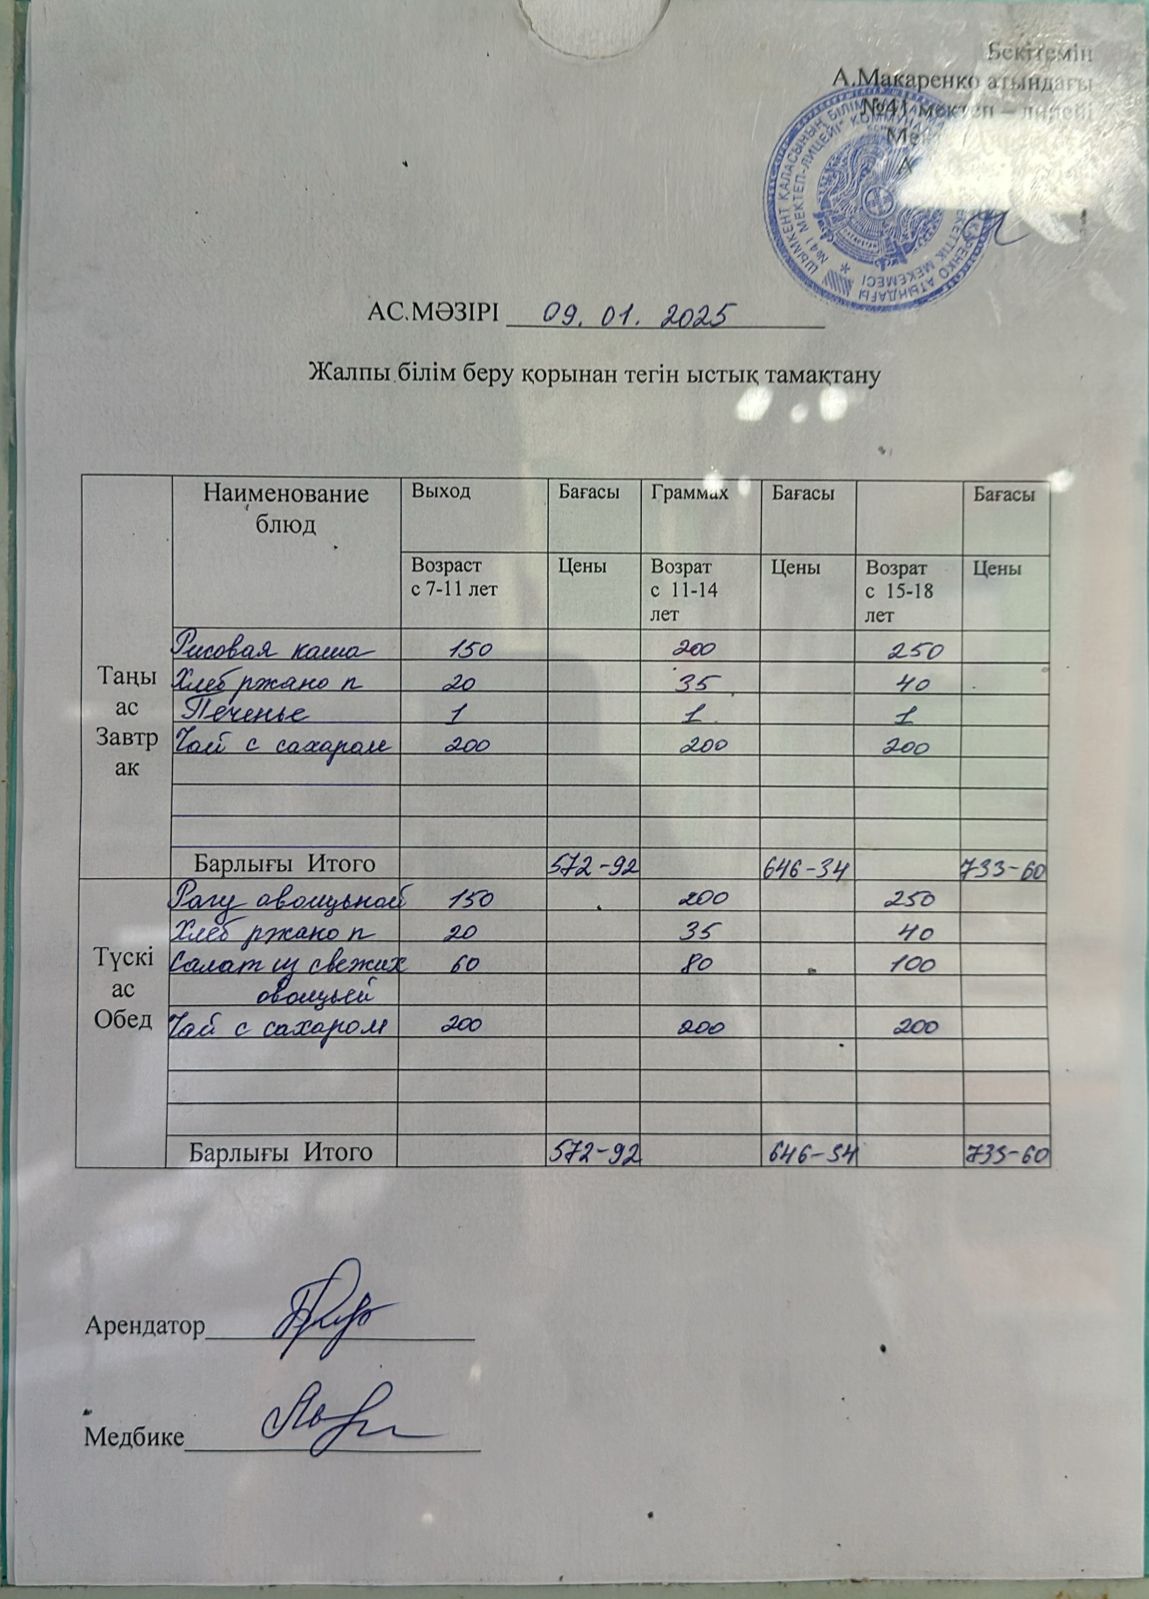 Бекітемін
А.Макаренко атындағы
№41 мектеп – лицейі
ШЫМКЕНТ ҚАЛАСЫНЫҢ БІЛІМ
№41 МЕКТЕП-ЛИЦЕЙІ" КОММУ
АРЕНКО АТЫНДАҒЫ
МЕКЕМЕСІ
АС.МӘЗІРІ 09. 01. 2025
Жалпы білім беру қорынан тегін ыстық тамақтану
Наименование блюд Выход Бағасы Граммах Бағасы Бағасы
Возраст с 7-11 лет Цены Возрат с 11-14 лет Цены Возрат с 15-18 лет Цены
Таңы ас Завтр ак
Рисовая каша 150 200 250
Хлеб ржано п 20 35 40
Печенье 1 1 1
Чай с сахаром 200 200 200
Барлығы Итого 572-92 646-34 733-60
Түскі ас Обед
Рагу овощьной 150 200 250
Хлеб ржано п 20 35 40
Салат из свежих 60 80 100
овощьей
Чай с сахаром 200 200 200
Барлығы Итого 572-92 646-34 733-60
Арендатор
Медбике